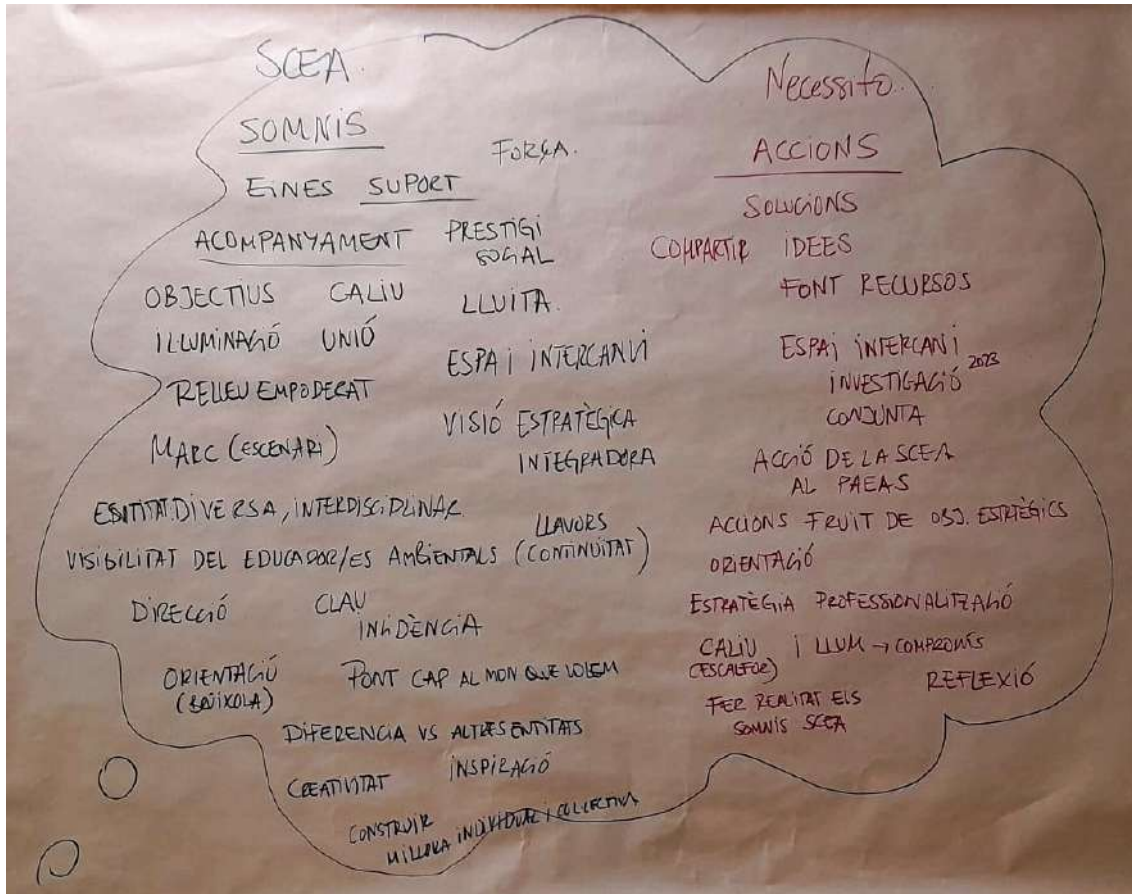 SCEA.
SOMNIS
FORÇA.
EINES SUPORT
ACOMPANYAMENT
PRESTIGI
SOCIAL
OBJECTIUS CALIU
LLUITA.
ILLUMINACIÓ UNIÓ
ESPAI INTERCANVI
RELLEU EMPODERAT
VISIÓ ESTRATÈGICA
INTEGRADORA
MARC (ESCENARI)
DIVERSA, INTERDISCIPLINAR
LLAVORS
(CONTINUITAT)
VISIBILITAT DEL EDUCADOR/ES AMBIENTALS
DIRECCIÓ
CLAU
INCIDÈNCIA
ORIENTACIÓ
(BRÚIXOLA)
PONT CAP AL MON QUE VOLEM
DIFERENCIA VS ALTRES ENTITATS
CREATIVITAT
INSPIRACIÓ
CONSTRUIR
MILLORA INDIVIDUAL I COL·LECTIVA
Necessito..
ACCIONS
SOLUCIONS
COMPARTIR IDEES
FONT RECURSOS
ESPAI INTERCANI
INVESTIGACIÓ 2023
CONJUNTA
ACCIÓ DE LA SCEA
AL PAEAS
ACCIONS FRUIT DE OBJ. ESTRTÈGICS
ORIENTACIÓ
ESTRATÈGIA PROFESSIONALITZACIÓ
CALIU I LLUM → COMPROMÍS
(ESCALFOR)
REFLEXIÓ
FER REALITAT ELS
SOMNIS SCEA